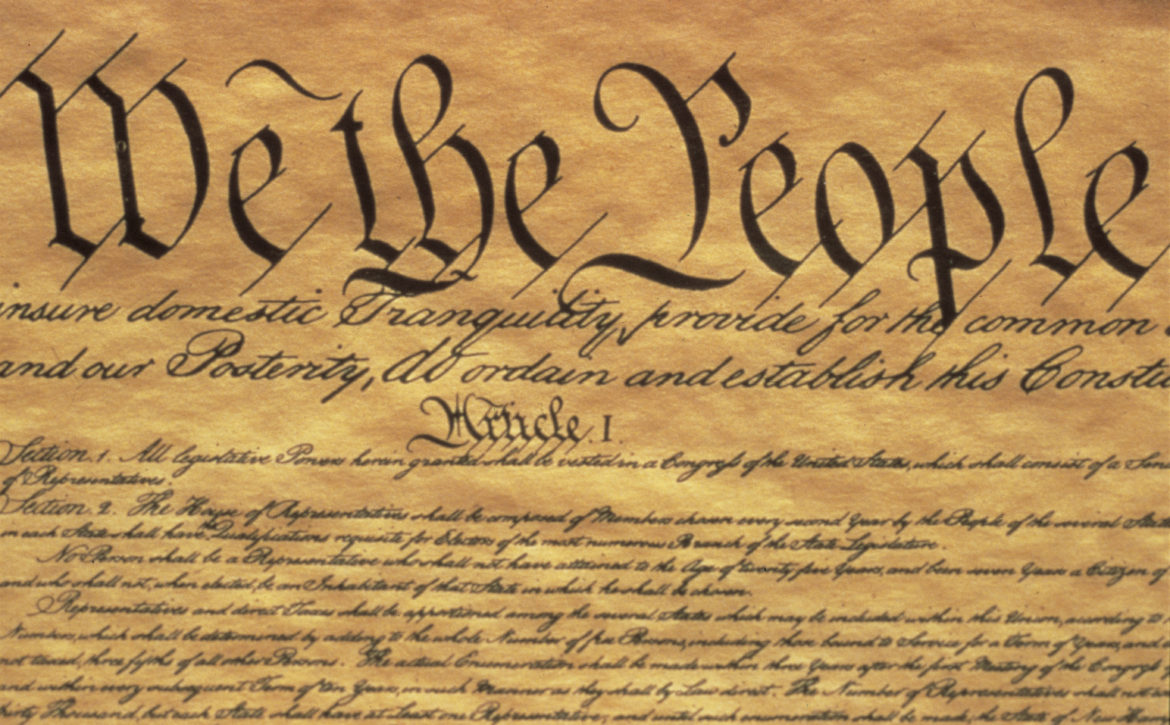 We the People
insure domestic Tranquility, provide for the common
and our Posterity, do ordain and establish this Constit
Article. I.
Section. 1. All legislative Powers herein granted shall be vested in a Congress of the United States, which shall consist of a Sen
of Representatives.
Section. 2. The House of Representatives shall be composed of Members chosen every second Year by the People of the several Stat
in each State shall have the Qualifications requisite for Electors of the most numerous Branch of the State Legislature.
No Person shall be a Representative who shall not have attained to the Age of twenty five Years, and been seven Years a Citizen of
and who shall not, when elected, be an Inhabitant of that State in which he shall be chosen.
Representatives and direct Taxes shall be apportioned among the several States which may be included within this Union, according to
Numbers, which shall be determined by adding to the whole Number of free Persons, including those bound to Service for a Term of Years, and
not taxed, three fifths of all other Persons. The actual Enumeration shall be made within three Years after the first Meeting of the Congress
and within every subsequent Term of ten Years, in such Manner as they shall by Law direct. The Number of Representatives shall not
thirty Thousand, but each State shall have at Least one Representative; and until such enumeration shall be made, the State of New